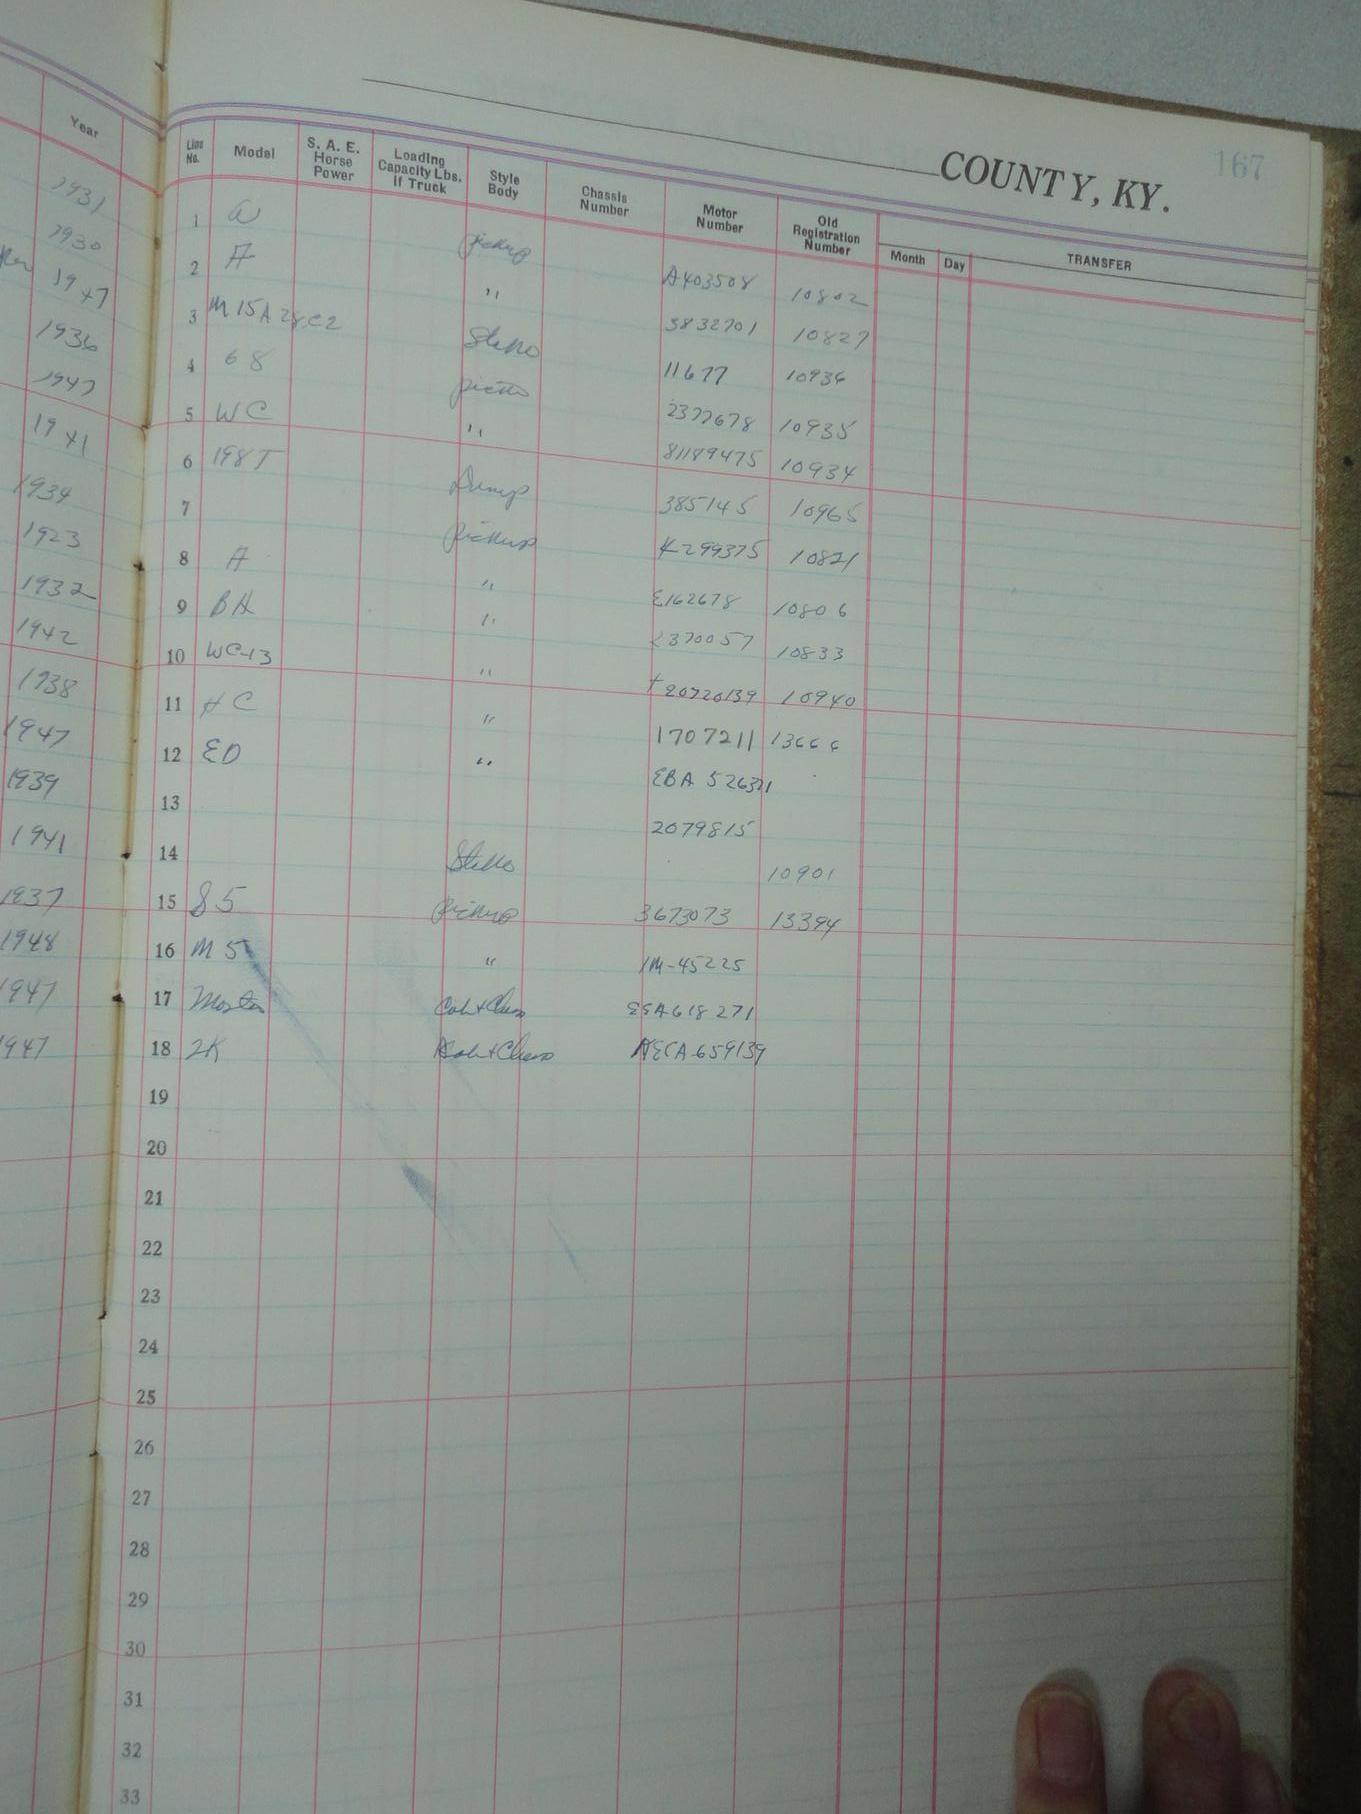 COUNTY, KY.
167
Year
Line No. Model S. A. E. Horse Power Loading Capacity Lbs. If Truck Style Body Chassis Number Motor Number Old Registration Number Month Day TRANSFER
1931 1 pickup A403508 10802
1930 2 A " 3832701 10827
1947 3 M 15A 28C2 Stake 11677 10936
1936 4 68 2372678 10935
1947 5 WC " 81189475 10934
1941 6 198T Dump 385145 10965
1934 7 pickup K299375 10821
1923 8 A " E162678 10806
1932 9 BA " 370057 10833
1942 10 WC-13 " 20720139 10940
1938 11 HC " 1707211 13666
1947 12 ED " EBA 526311
1939 13 2079815
1941 14 Stake 10901
1937 15 85 pickup 3673073 13394
1948 16 M 5 " 1M-45225
1947 17 Master Cab+Chass EEA618271
1947 18 2K Cab+Chass AECA-659139
19
20
21
22
23
24
25
26
27
28
29
30
31
32
33